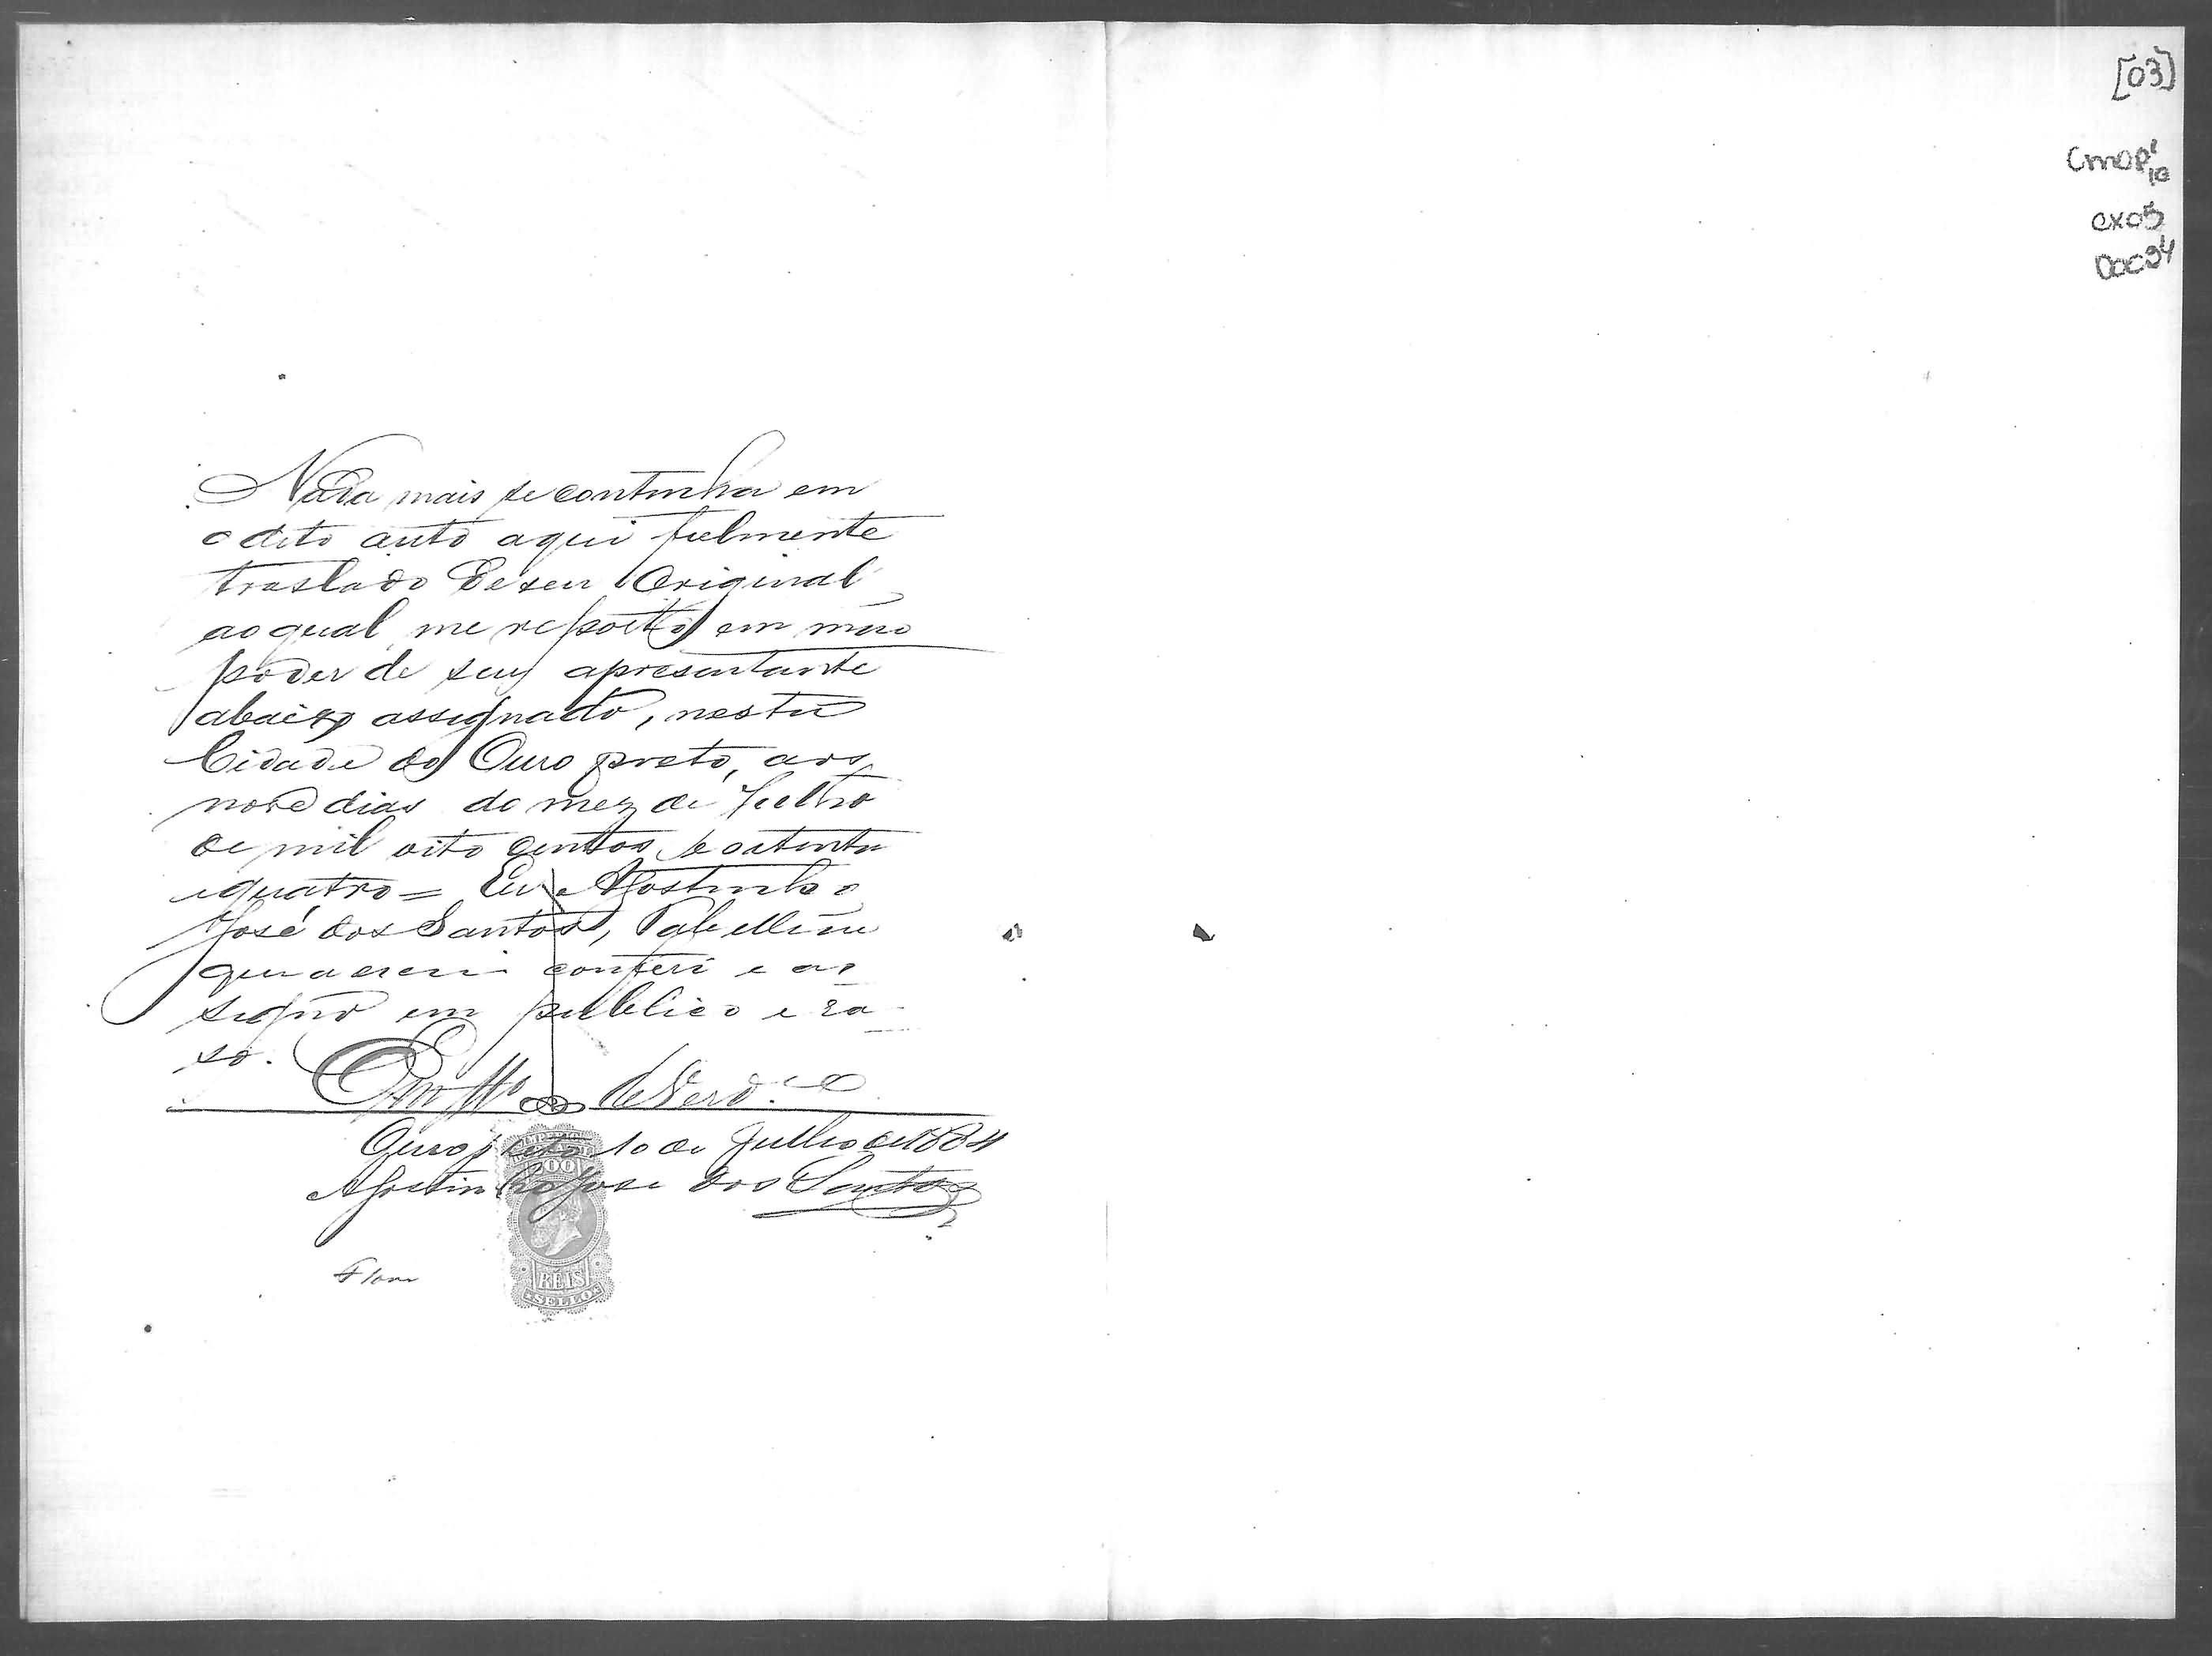 Nada mais se continha em
o dito auto aqui fielmente
traslado de seu Original
ao qual me reporto em mão
poder de seu apresentante
abaixo assignado, nesta
Cidade do Ouro preto, aos
nove dias do mez de Julho
de mil oito centos e oitenta
e quatro = Eu Agostinho
José dos Santos, Tabellião
que a escrevi conferi e as
signo em publico e ra-
so.
Em tto de Verd.e
Ouro preto 10 de Julho de 1884
Agostinho José dos Santos
IMPERIO
200
RÉIS
SELLO
[03]
CMOP
cx05
DOC34